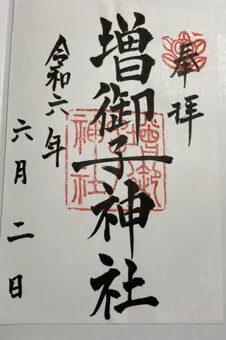 奉拝
増御子神社
令和六年
六月二日